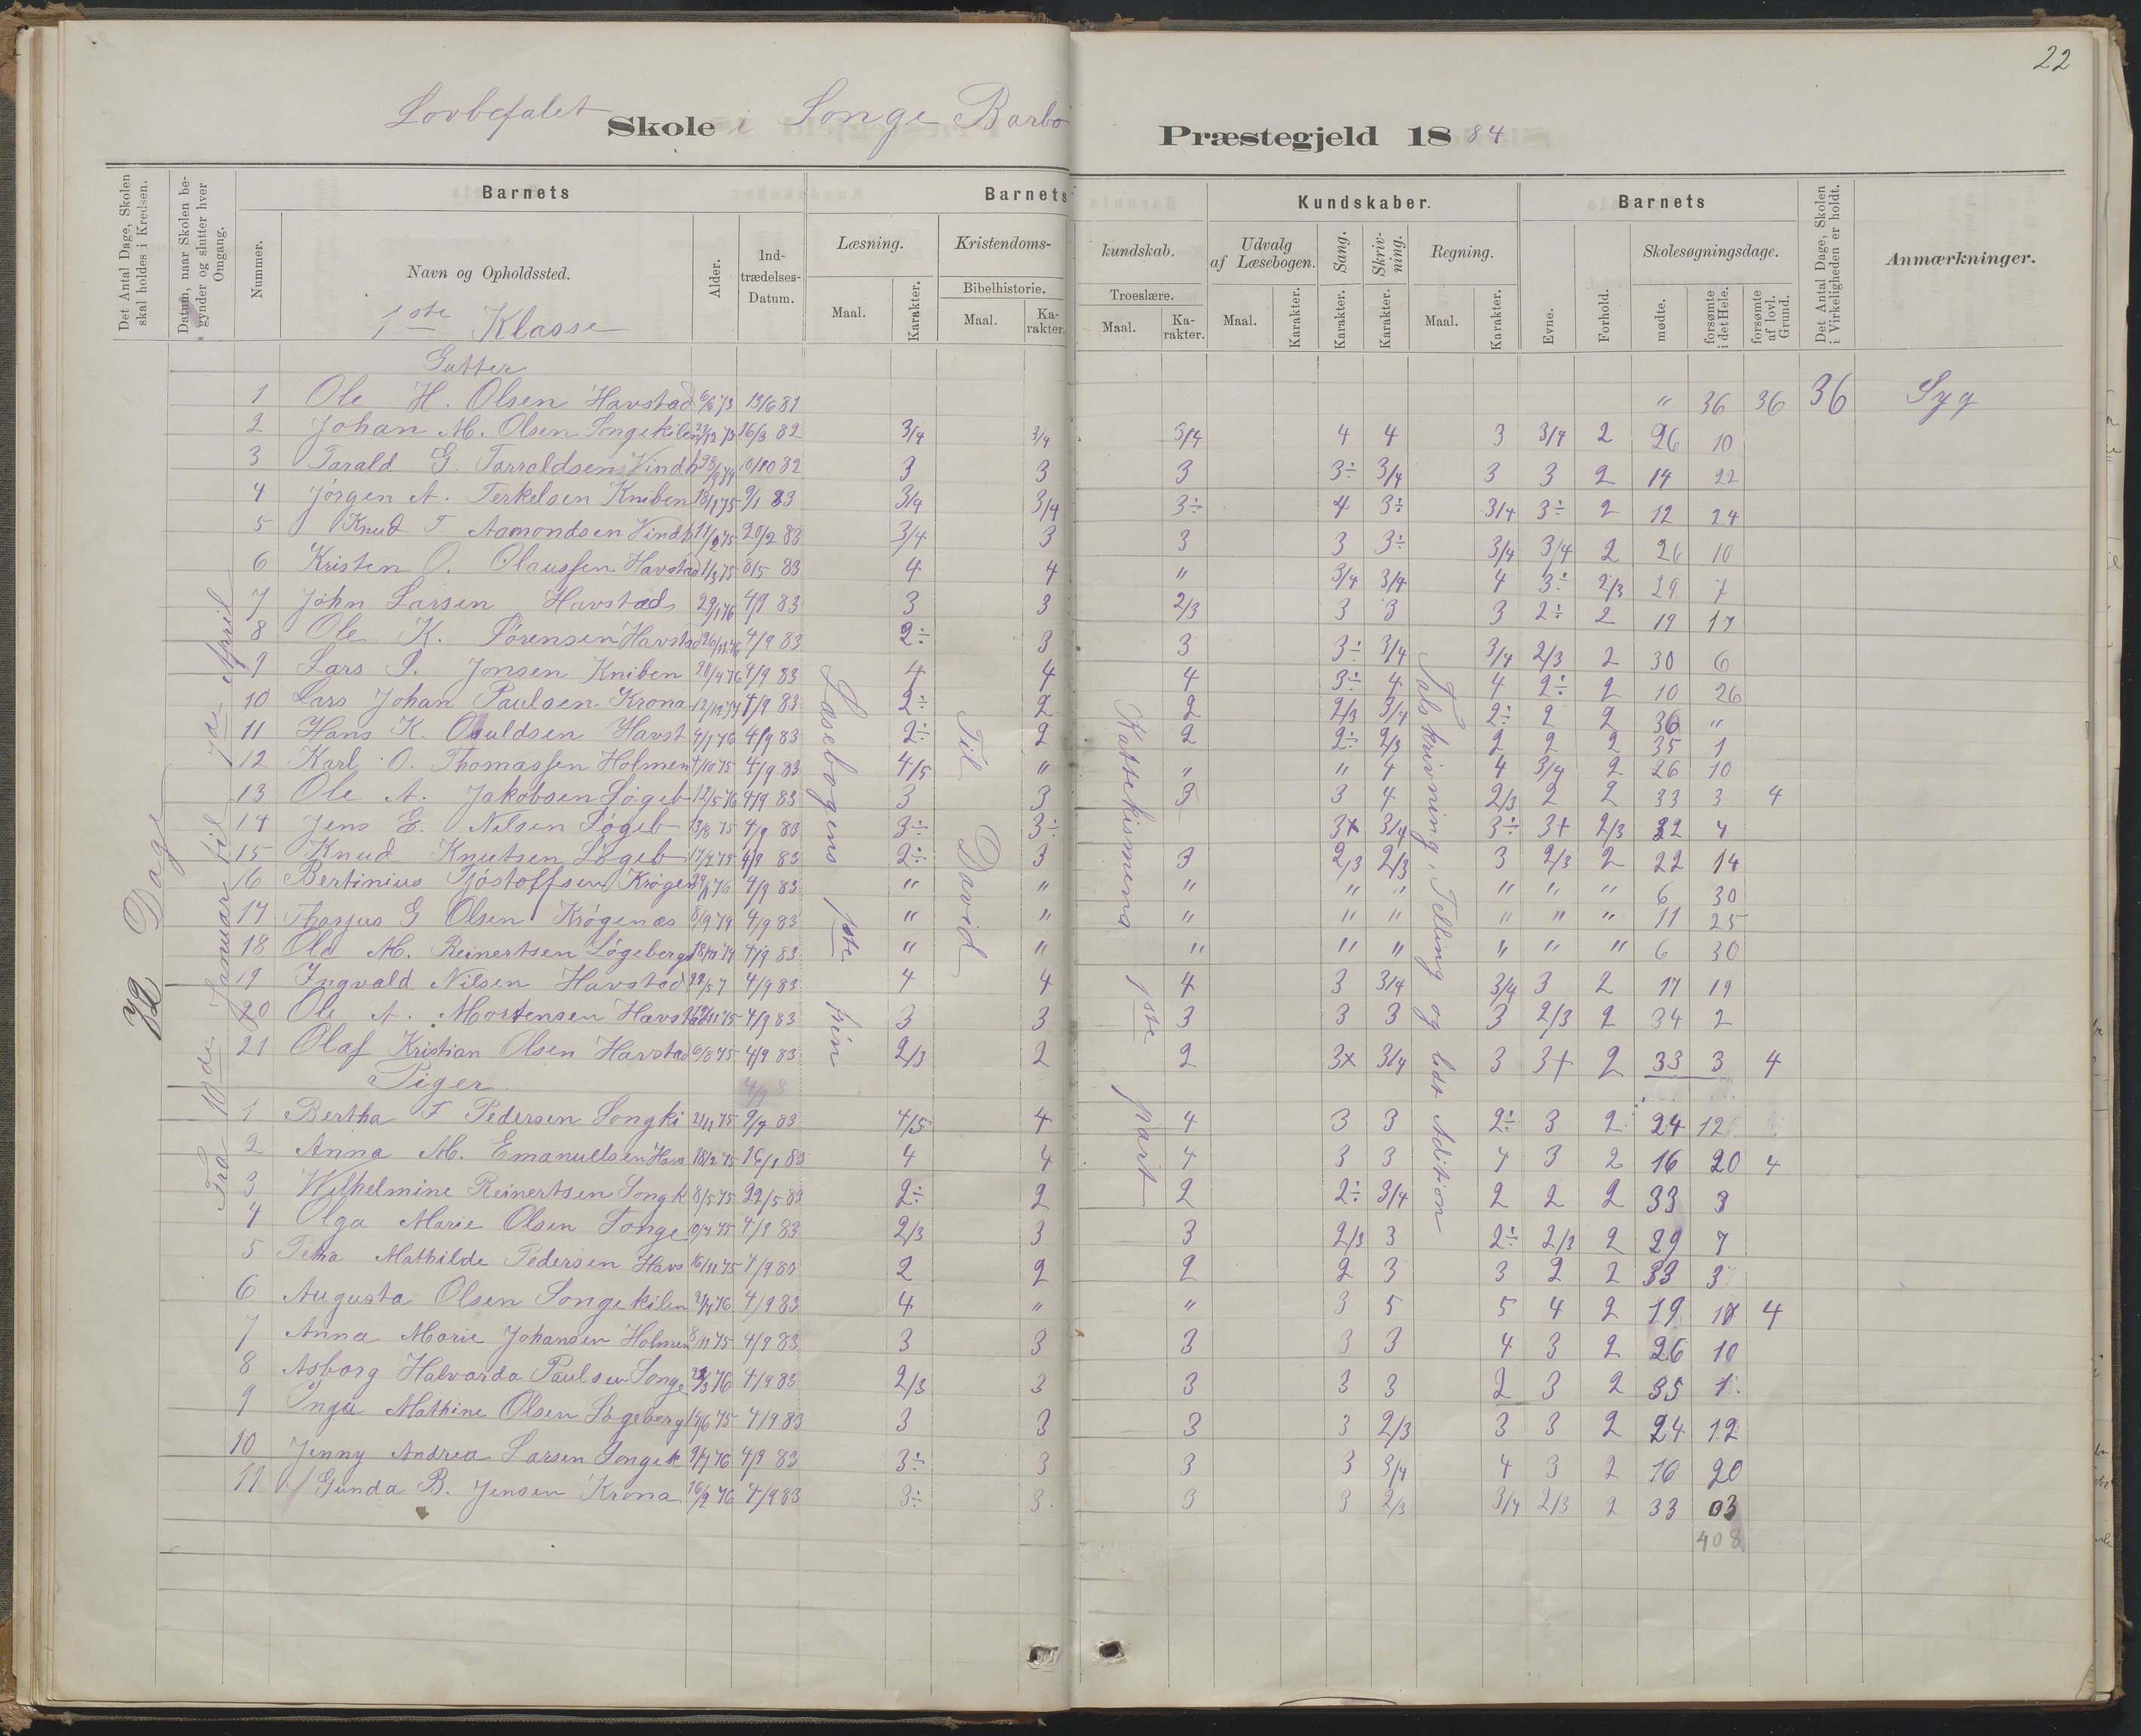 22
Lovbefalet Skole i Songe Barbo Præstegjeld 1884
Det Antal Dage, Skolen skal holdes i Kredsen.
Datum, naar Skolen begynder og slutter hver Omgang.
Barnets
Nummer.
Navn og Opholdssted.
Alder.
Indtrædelses-Datum.
Barnets Kundskaber.
Læsning.
Maal.
Karakter.
Kristendoms-kundskab.
Bibelhistorie.
Maal.
Karakter.
Troeslære.
Maal.
Karakter.
Udvalg af Læsebogen.
Maal.
Karakter.
Sang.
Karakter.
Skrivning.
Karakter.
Regning.
Maal.
Karakter.
Barnets
Evne.
Forhold.
Skolesøgningsdage.
mødte.
forsømte i det Hele.
forsømte af lovl. Grund.
Det Antal Dage, Skolen i Virkeligheden er holdt.
Anmærkninger.
72 Dage
Fra 10de Januar til 7de April
Læsebogens 1ste trin
Til David
Kattekismens 1ste part
Talskrivning, Telling og lidt Adition
1ste Klasse
Gutter
1 Ole H. Olsen Havstad 6/6 73 13/6 81 " 36 36 36 Syg
2 Johan M. Olsen Songekilen 23/12 73 16/3 82 3/4 3/4 3/4 4 4 3 3/4 2 26 10
3 Tarald G. Tarraldsen Vindh 28/9 74 10/10 82 3 3 3 3÷ 3/4 3 3 2 14 22
4 Jörgen A. Terkelsen Kniben 18/1 75 9/1 83 3/4 3/4 3÷ 4 3÷ 3/4 3÷ 2 12 24
5 Knud T. Aamondsen Vindh 11/2 75 20/2 83 3/4 3 3 3 3÷ 3/4 3/4 2 26 10
6 Kristen O. Olaussen Havstad 1/3 75 8/5 83 4 4 " 3/4 3/4 4 3÷ 2/3 29 7
7 John Larsen Havstads 29/1 76 4/9 83 3 3 2/3 3 3 3 2÷ 2 19 17
8 Ole K. Sörensen Havstad 4/9 83 2÷ 3 3 3÷ 3/4 3/4 2/3 2 30 6
9 Lars P. Jonsen Kniben 20/4 76 4/9 83 4 4 4 3÷ 4 4 2÷ 2 10 26
10 Lars Johan Paulsen Krona 12/12 74 4/9 83 2÷ 2 2 2/3 3/4 2÷ 2 2 36 "
11 Hans K. Havst 4/1 76 4/9 83 2÷ 2 2 2÷ 2/3 2 2 2 35 1
12 Karl O. Thomassen Holmen 4/10 75 4/9 83 4/5 " " " 4 4 3/4 2 26 10
13 Ole A. Jakobsen Lögeb 12/5 76 4/9 83 3 3 3 3 4 2/3 2 2 33 3 4
14 Jens E. Nilsen Lögeb 13/8 75 4/9 83 3÷ 3÷ 3+ 3/4 3÷ 3+ 2/3 32 4
15 Knud Knutsen Lögeb 17/2 75 4/9 83 2÷ 3 3 2/3 2/3 3 2/3 2 22 14
16 Bertinius Tjöstolfsen Krögen 4/9 83 " " " " " " " " 6 30
17 Tharjus G Olsen Krögenæs 8/9 74 4/9 83 " " " " " " " " 11 25
18 Ole M. Reinertsen Lögeberg 18/10 74 4/9 83 " " " " " " " " 6 30
19 Ingvald Nilsen Havstad 4/9 83 4 4 4 3 3/4 3/4 3 2 17 19
20 Ole A. Mortensen Havstad 4/9 83 3 3 3 3 3 3 2/3 2 34 2
21 Olaf Kristian Olsen Havstad 6/8 75 4/9 83 2/3 2 2 3+ 3/4 3 3+ 2 33 3 4
Piger.
1 Bertha F Pedersen Songki 4/5 4 4 3 3 2÷ 3 2 24 12
2 Anna M. Emanuelsen Havs 18/2 75 16/1 83 4 4 4 3 3 4 3 2 16 20 4
3 Wilhelmine Reinertsen Songk 8/5 75 22/5 83 2÷ 2 2 2÷ 3/4 2 2 2 33 3
4 Olga Marie Olsen Songe 4/9 83 2/3 3 3 2/3 3 2÷ 2/3 2 29 7
5 Petra Mathilde Pedersen Havs 16/11 75 4/9 83 2 2 2 2 3 3 2 2 33 3
6 Augusta Olsen Songekilen 4/9 83 4 " " 3 5 5 4 2 19 17 4
7 Anna Marie Johansen Holmen 8/11 75 4/9 83 3 3 3 3 3 4 3 2 26 10
8 Asborg Halvarda Paulsen Songe 4/9 83 2/3 3 3 3 3 2 3 2 35 1
9 Inga Mathine Olsen Lögeberg 14/6 75 4/9 83 3 3 3 3 2/3 3 3 2 24 12
10 Jenny Andrea Larsen Songek 9/1 76 4/9 83 3÷ 3 3 3 3/4 4 3 2 16 20
11 Gunda B. Jensen Krona 16/2 76 4/9 83 3÷ 3 3 3 2/3 3/4 2/3 2 33 03
408